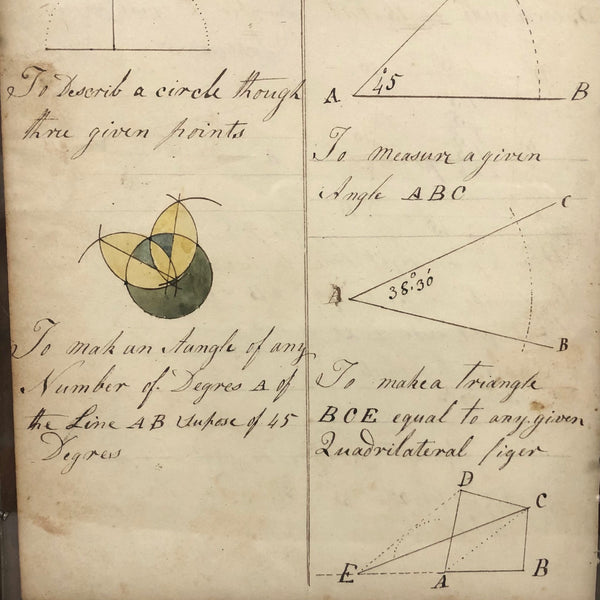 To Describ a circle though
thre given points
To mak an Aangle of any
Number of Degres A of
the Line AB Supose of 45
Degres
45
A B
To measure a given
Angle ABC
C
38°.30'
A
B
To make a triangle
BCE equal to any given
Quadrilateral figer
D
C
E A B